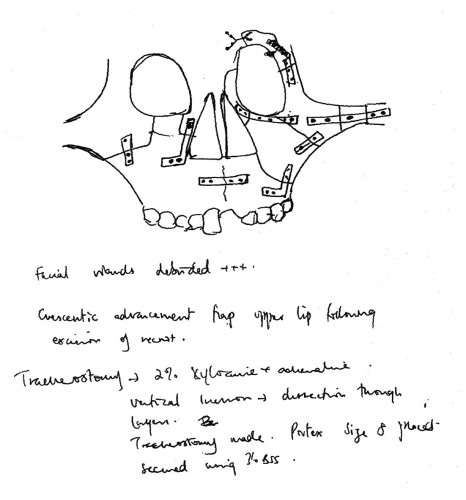 Facial wounds debrided +++.
Crescentic advancement flap upper lip following
excision of
Tracheostomy → 2% Xylocaine + adrenaline.
vertical incision → dissection through
layers.
Tracheostomy made. Portex size 8 placed
secured using